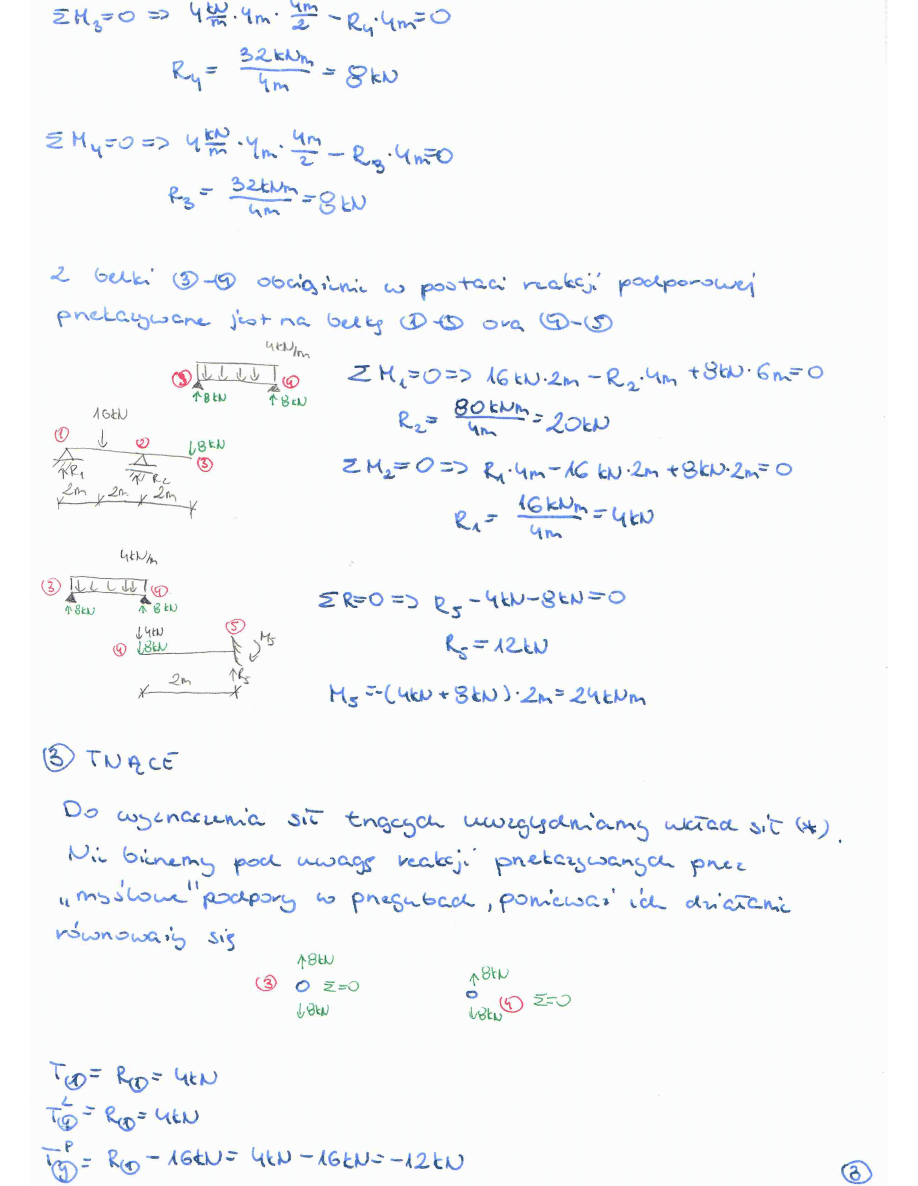 ΣM₃=0 => 4 kN/m · 4m · 4m/2 − R₄·4m=0
R₄ = 32kNm/4m = 8kN
ΣM₄=0 => 4 kN/m · 4m · 4m/2 − R₃·4m=0
R₃ = 32kNm/4m = 8kN
Z belki ③-④ obciążenie w postaci reakcji podporowej
przekazywane jest na belkę ①-③ oraz ④-⑤
4kN/m
③ ④
↑8kN ↑8kN
16kN
① ② ↓8kN
③
↑R₁ ↑R₂
2m 2m 2m
ΣM₁=0 => 16kN·2m − R₂·4m + 8kN·6m=0
R₂ = 80kNm/4m = 20kN
ΣM₂=0 => R₁·4m − 16kN·2m + 8kN·2m=0
R₁ = 16kNm/4m = 4kN
4kN/m
③ ④
↑8kN ↑8kN
↓4kN ⑤
④ ↓8kN M₅
↑R₅
2m
ΣR=0 => R₅ − 4kN − 8kN=0
R₅ = 12kN
M₅ = −(4kN + 8kN)·2m = 24kNm
③ TNĄCE
Do wyznaczenia sił tnących uwzględniamy układ sił (*).
Nie bierzemy pod uwagę reakcji przekazywanych przez
„myślowe" podpory w przegubach, ponieważ ich działanie
równoważy się
↑8kN
③ Σ=0
↓8kN
↑8kN
④ Σ=0
↓8kN
T① = R① = 4kN
R① = 4kN
R① − 16kN = 4kN − 16kN = −12kN
③